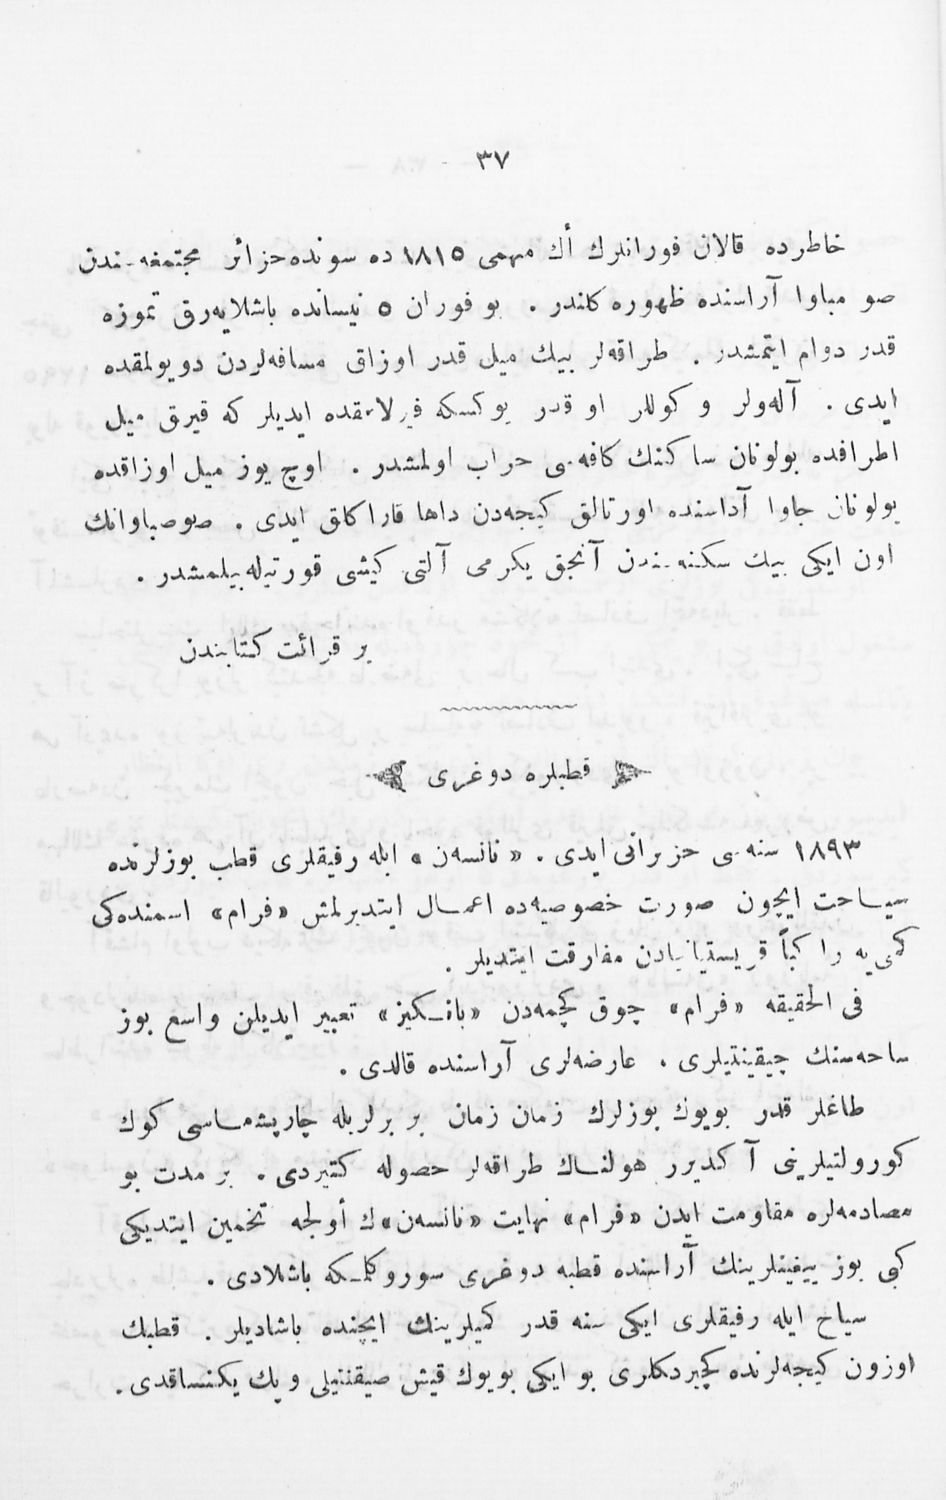 ٣٧
خاطرده قالان فورانلرك أك مهمى ١٨١٥ ده سونده جزائر مجتمعه‌سندن
صو مباوا آراسنده ظهوره كلندر . بو فوران ٥ نيسانده باشلايه‌رق تموزه
قدر دوام ايتمشدر . طراقه‌لر بيك ميل قدر اوزاق مسافه‌لردن دويولمقده
ايدى . آله‌ولر و كوللر او قدر يوكسكه فيرلامقده ايديلر كه قيرق ميل
اطرافده بولونان ساكنك كافه‌سى خراب اولمشدر . اوچ يوز ميل اوزاقده
بولونان جاوا آداسنده اورتالق كيجه‌دن داها قاراكلق ايدى . صوصباوانك
اون ايكى بيك سكنه‌سندن آنجق يكرمى آلتى كيشى قورتيله‌بيلمشدر .
بر قرائت كتابندن
قطبلره دوغرى
١٨٩٣ سنه‌سى حزيرانى ايدى . «نانسه‌ن» ايله رفيقلرى قطب بوزلرنده
سياحت ايچون صورت خصوصيه‌ده اعمال ايتديرلمش «فرام» اسمنده‌كى
كمى‌يه راكباً قريستيانيادن مفارقت ايتديلر .
فى الحقيقه «فرام» چوق كچمه‌دن «بانكيز» تعبير ايديلن واسع بوز
ساحه‌سنك چيقينتيلرى ، عارضه‌لرى آراسنده قالدى .
طاغلر قدر بويوك بوزلرك زمان زمان بر برلريله چارپشماسى كوك
كورولتيلرينى آكديرر هولناك طراقه‌لر حصوله كتيردى . بر مدت بو
مصادمه‌لره مقاومت ايدن «فرام» نهايت «نانسه‌ن»ك أولجه تخمين ايتديكى
كبى بوز ييغينلرينك آراسنده قطبه دوغرى سوروكلمكه باشلادى .
سياح ايله رفيقلرى ايكى سنه قدر كميلرينك ايچنده ياشاديلر . قطبك
اوزون كيجه‌لرنده كچيردكلرى بو ايكى بويوك قيش صيقنتيلى و پك يكنساقدى .